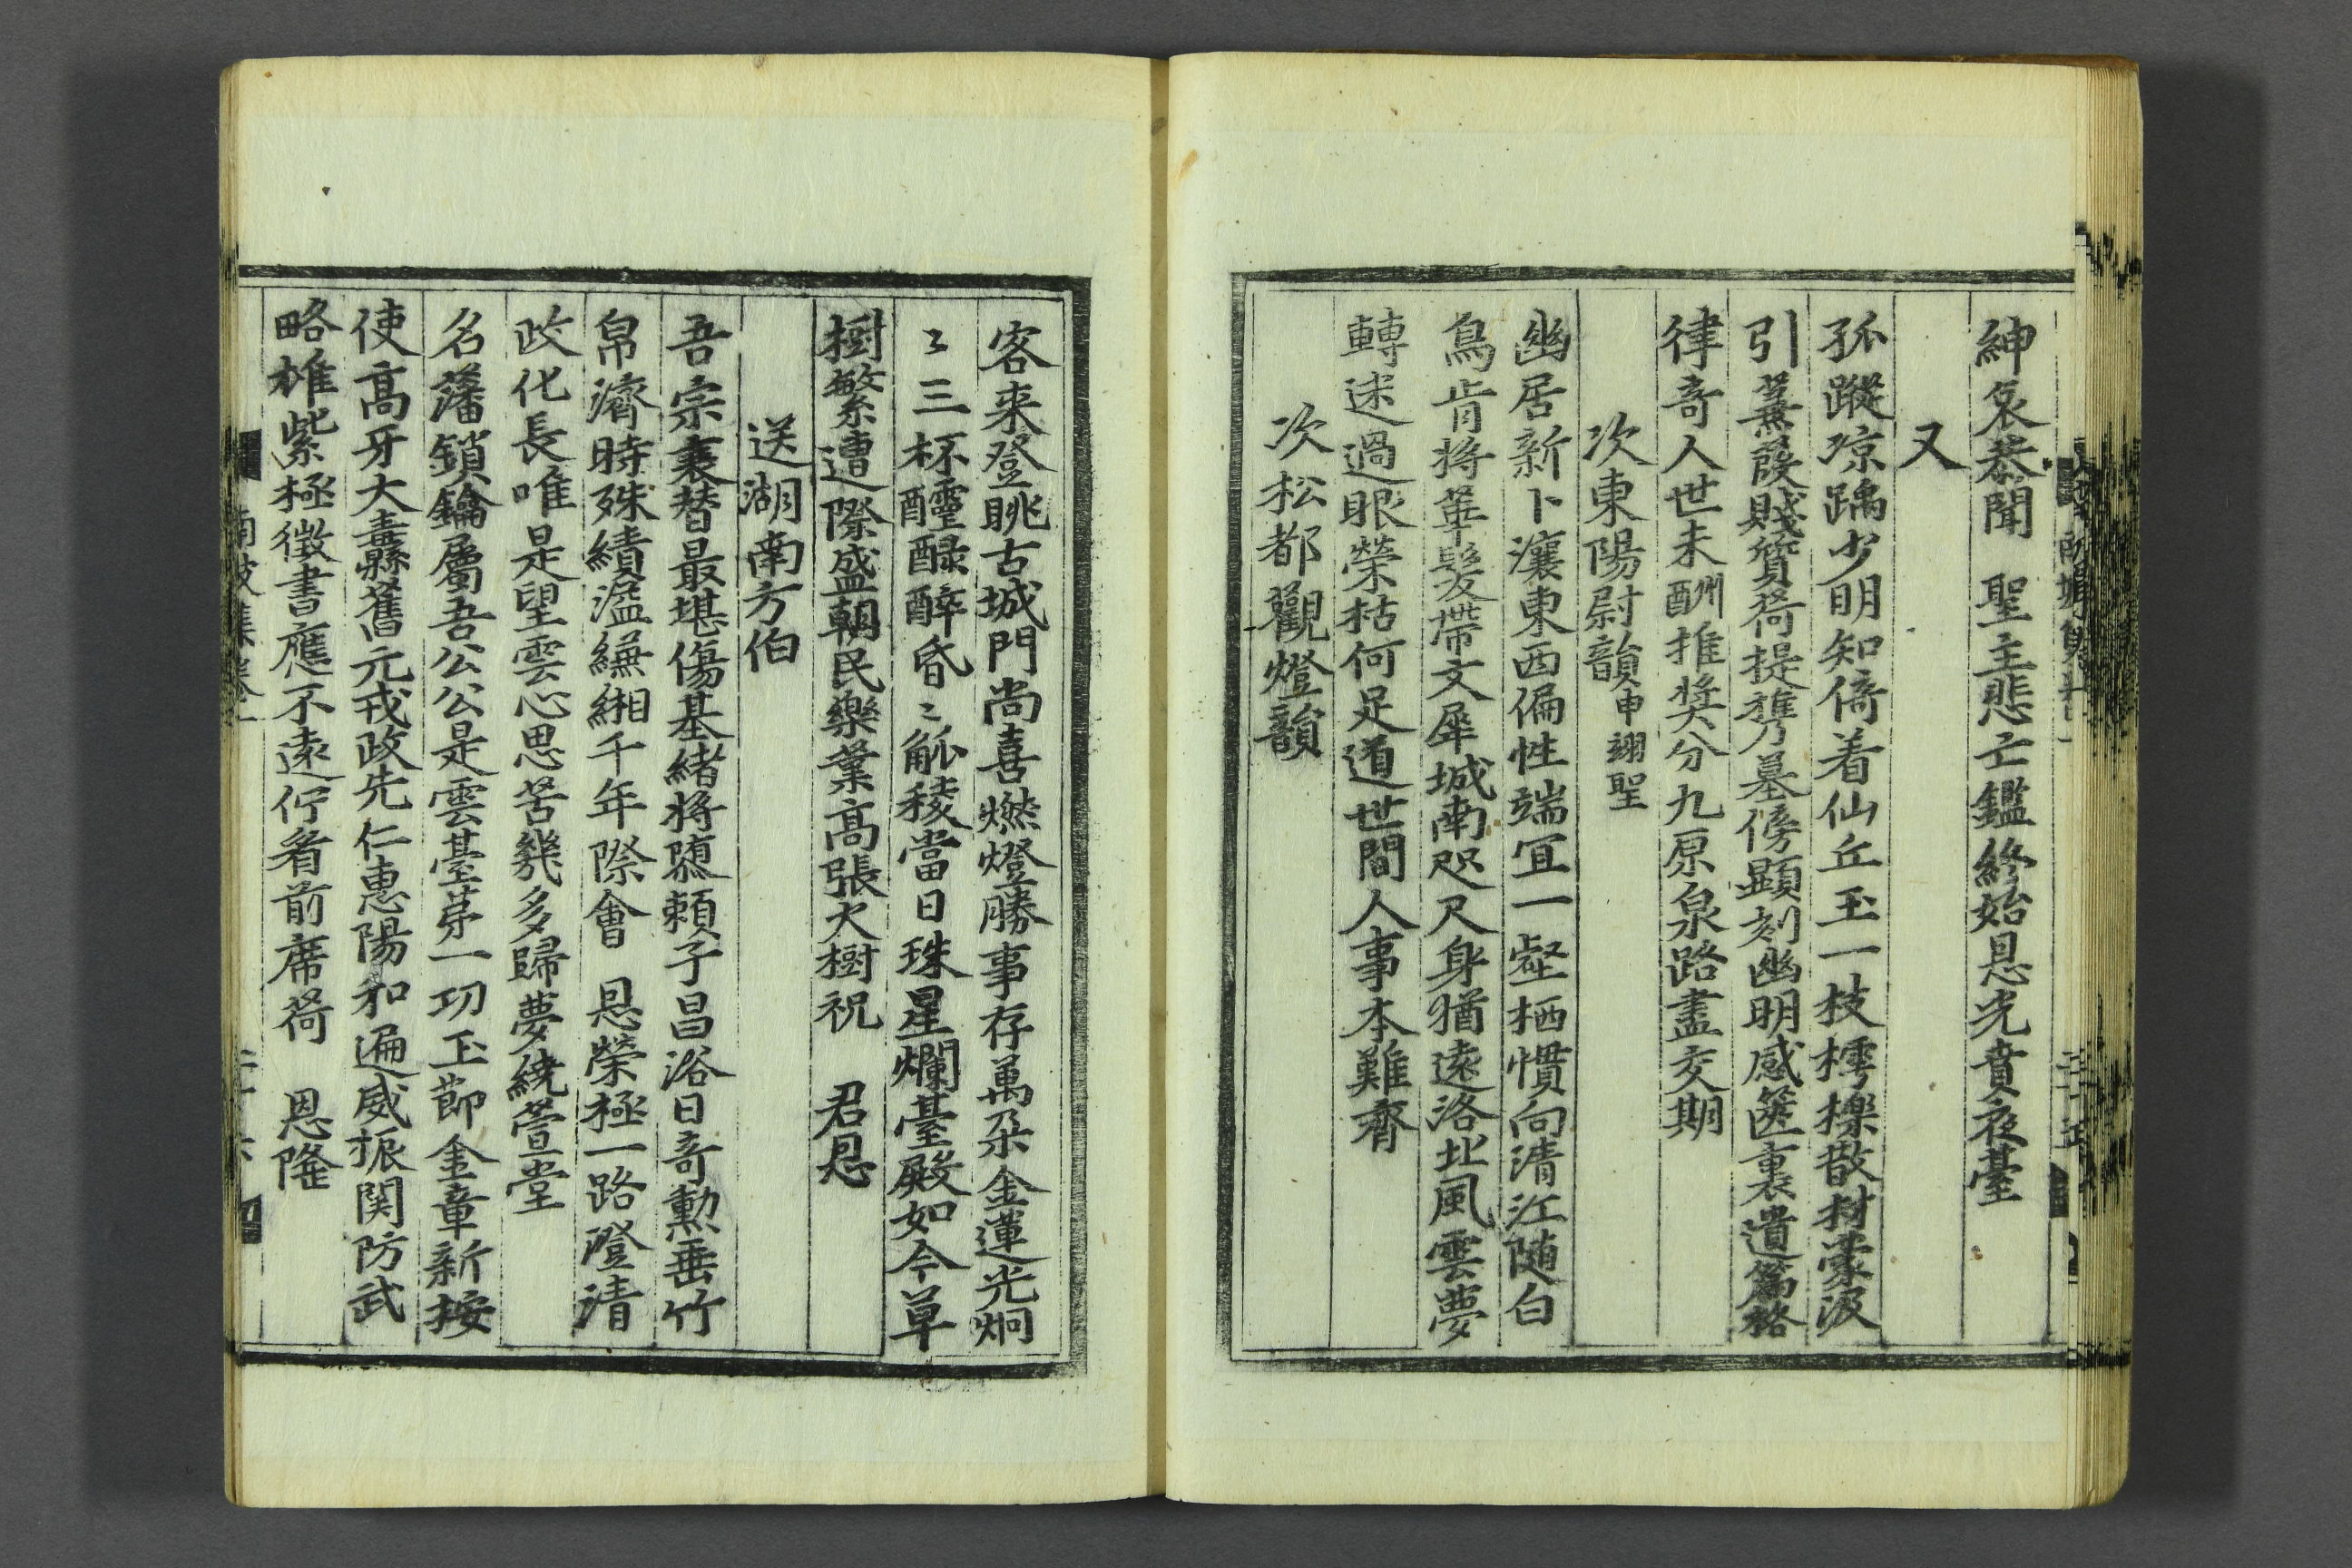 紳哀恭聞　聖主悲亡鑑終始恩光賁夜臺
又
孤蹤凉踽少明知倚着仙丘玉一枝樗櫟散材蒙汲
引蒹葭賤質荷提携墓傍顯刻幽明感篋裏遺篇格
律奇人世未酬推奬分九原泉路盡交期
次東陽尉韻申翊聖
幽居新卜瀼東西偏性端宜一壑栖慣向淸江随白
鳥肯將華髮帶文犀城南咫尺身猶遠洛北風雲夢
轉迷過眼榮枯何足道世間人事本難齊
次松都觀燈韻
客来登眺古城門尚喜燃燈勝事存萬朶金蓮光炯
〻三杯醽醁醉昏〻觚稜當日珠星爛臺殿如今草
樹繁遭際盛朝民樂業高張火樹祝　君恩
送湖南方伯
吾宗衰替最堪傷基緒將隳頼子昌浴日奇勳垂竹
帛濟時殊績溢縑緗千年際會　恩榮極一路澄清
政化長唯是望雲心思苦幾多歸夢繞萱堂
名藩鎖鑰屬吾公公是雲臺苐一功玉莭金章新按
使高牙大纛舊元戎政先仁惠陽和遍威振関防武
略雄紫極徵書應不遠佇看前席荷　恩隆